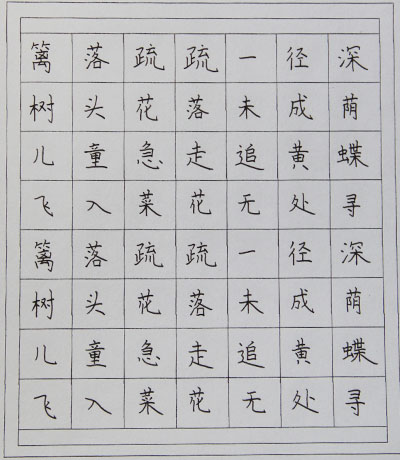 篱落疏疏一径深
树头花落未成荫
儿童急走追黄蝶
飞入菜花无处寻
篱落疏疏一径深
树头花落未成荫
儿童急走追黄蝶
飞入菜花无处寻